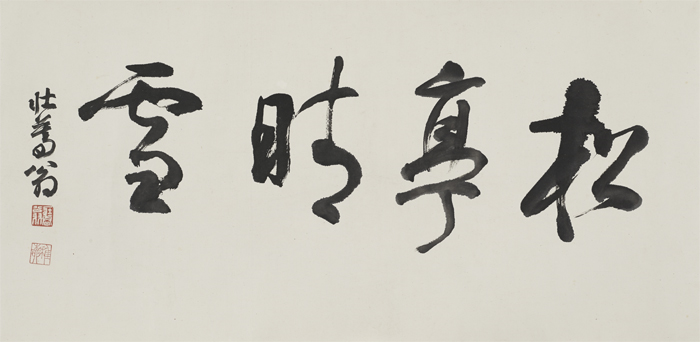 松亭晴雪
壮暮翁